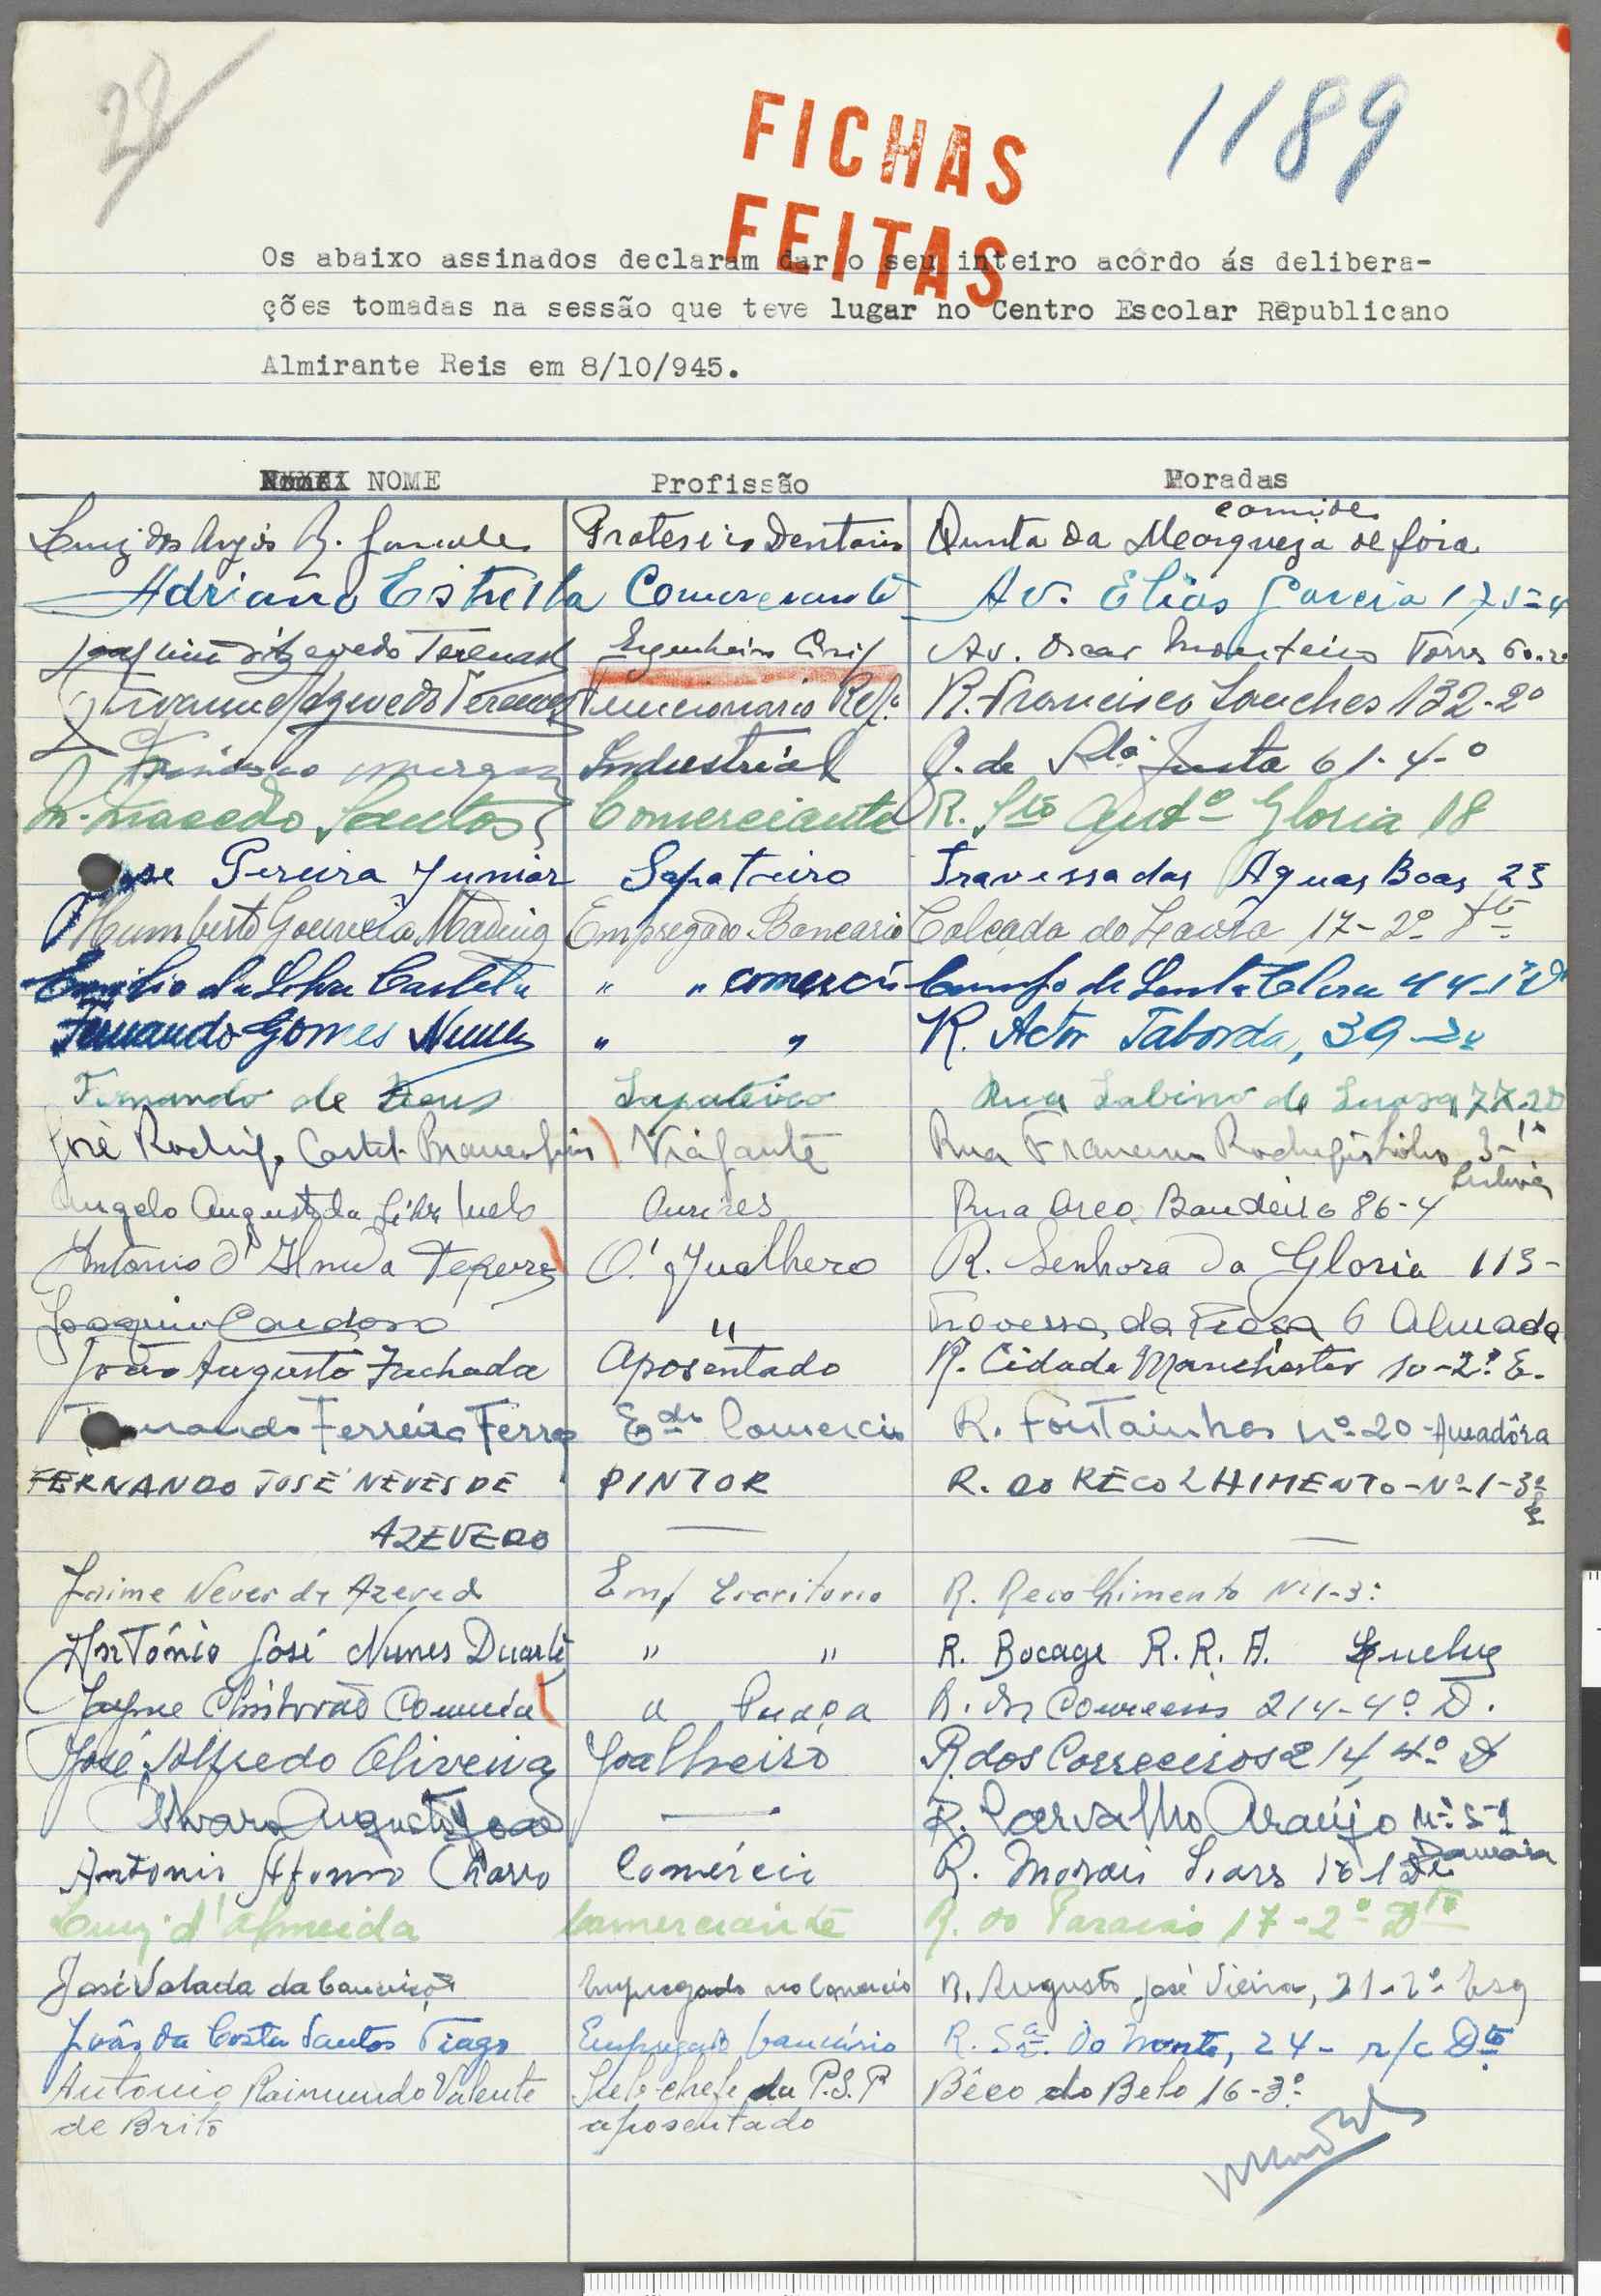 28
1189
FICHAS
FEITAS
Os abaixo assinados declaram dar o seu inteiro acôrdo ás delibera-
ções tomadas na sessão que teve lugar no Centro Escolar Republicano
Almirante Reis em 8/10/945.
NOME Profissão Moradas
Luiz dos Anjos R. Dentaria Quinta da de fora
Adriano Estrella Comerciante Av. Elias Garcia 175-4
Joaquim Azevedo Terenas Engenheiro Civil Av. Oscar Monteiro Torres
Azevedo Terenas Funcionario Ref. R. Francisco Sanches 132-2º
Francisco Industrial de Sta Justa 61-4-º
Macedo Santos Comerciante R. Sto Antº Gloria 18
Jose Pereira Junior Sapateiro Travessa das Aguas Boas 23
Humberto Gouveia Empregado Bancario Calçada do Lavra 17-2º Dto
Emilio da Silva " " comercio Campo de Santa Clara 44-1º
Fernando Gomes Nunes " " R. Actor Taborda, 39
Fernando de Deus Sapateiro Rua Sabino de Sousa
José Rodrig. Castel Branco Viajante Rua
Lisboa
Angelo Augusto da Silva Ourives Rua Arco Bandeira 86-4
Antonio d'Almeida O. Joalheiro R. Senhora da Gloria 113-
Joaquim Cardoso " Travessa da 6 Almada
João Augusto Fachada Aposentado R. Cidade Manchester 10-2º E.
Fernando Ferreira Edo Comercio R. Fontainhas nº 20 - Amadôra
FERNANDO JOSÉ NEVES DE PINTOR R. DO RECOLHIMENTO - Nº 1-3º
AZEVEDO
Jaime Neves de Azevedo Emp Escritorio R. Recolhimento Nº 1-3º
António José Nunes Duarte " " R. Bocage R.R.A. Queluz
Jayme Christovão Correia " Praça R. dos Correeiros 214-4º D.
José Alfredo Oliveira Joalheiro R. dos Correeiros 214, 4º D
Alvaro Augusto R. Carvalho Araújo
Damaia
Antonio Afonso Comércio R. Morais Soares
Luiz d'Almeida Comerciante R. do Paraiso 17-2º Dto
José Salada da Conceição Empregado no Comercio R. Augusto José Vieira, 21-2º Esq
João da Costa Santos Tiago Empregado bancário R. Sra. do Monte, 24 - r/c Dto
Antonio Raimundo Valente Sub-chefe da P.S.P Bêco do Belo 16-3º
de Brito aposentado